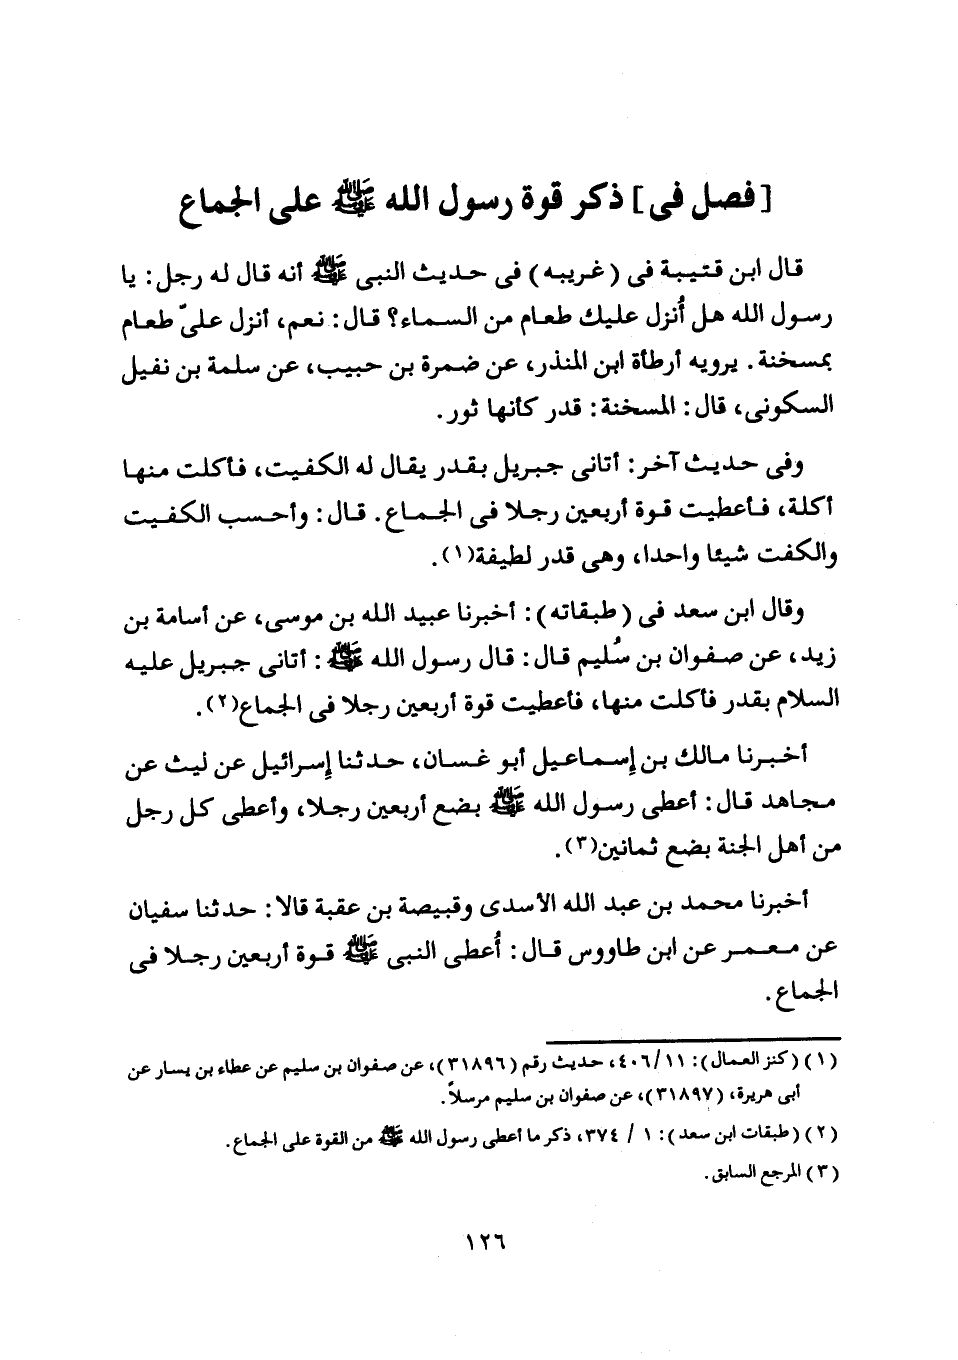 [فصل فى] ذكر قوة رسول الله ﷺ على الجماع
قال ابن قتيبة فى (غريبه) فى حديث النبى ﷺ أنه قال له رجل: يا
رسول الله هل أُنزل عليك طعام من السماء؟ قال: نعم، أنزل علىّ طعام
بمسخنة. يرويه أرطأة ابن المنذر، عن ضمرة بن حبيب، عن سلمة بن نفيل
السكونى، قال: المسخنة: قدر كأنها ثور.
وفى حديث آخر: أتانى جبريل بقدر يقال له الكفيت، فأكلت منها
أكلة، فأعطيت قوة أربعين رجلا فى الجماع. قال: وأحسب الكفيت
والكفت شيئا واحدا، وهى قدر لطيفة(١).
وقال ابن سعد فى (طبقاته): أخبرنا عبيد الله بن موسى، عن أسامة بن
زيد، عن صفوان بن سُليم قال: قال رسول الله ﷺ: أتانى جبريل عليه
السلام بقدر فأكلت منها، فأعطيت قوة أربعين رجلا فى الجماع(٢).
أخبرنا مالك بن إسماعيل أبو غسان، حدثنا إسرائيل عن ليث عن
مجاهد قال: أعطى رسول الله ﷺ بضع أربعين رجلا، وأعطى كل رجل
من أهل الجنة بضع ثمانين(٣).
أخبرنا محمد بن عبد الله الأسدى وقبيصة بن عقبة قالا: حدثنا سفيان
عن معمر عن ابن طاووس قال: أُعطى النبى ﷺ قوة أربعين رجلا فى
الجماع.
(١) (كنز العمال): ٤٠٦/١١، حديث رقم (٣١٨٩٦)، عن صفوان بن سليم عن عطاء بن يسار عن
أبى هريرة، (٣١٨٩٧)، عن صفوان بن سليم مرسلاً.
(٢) (طبقات ابن سعد): ١ / ٣٧٤، ذكر ما أعطى رسول الله ﷺ من القوة على الجماع.
(٣) المرجع السابق.
١٢٦